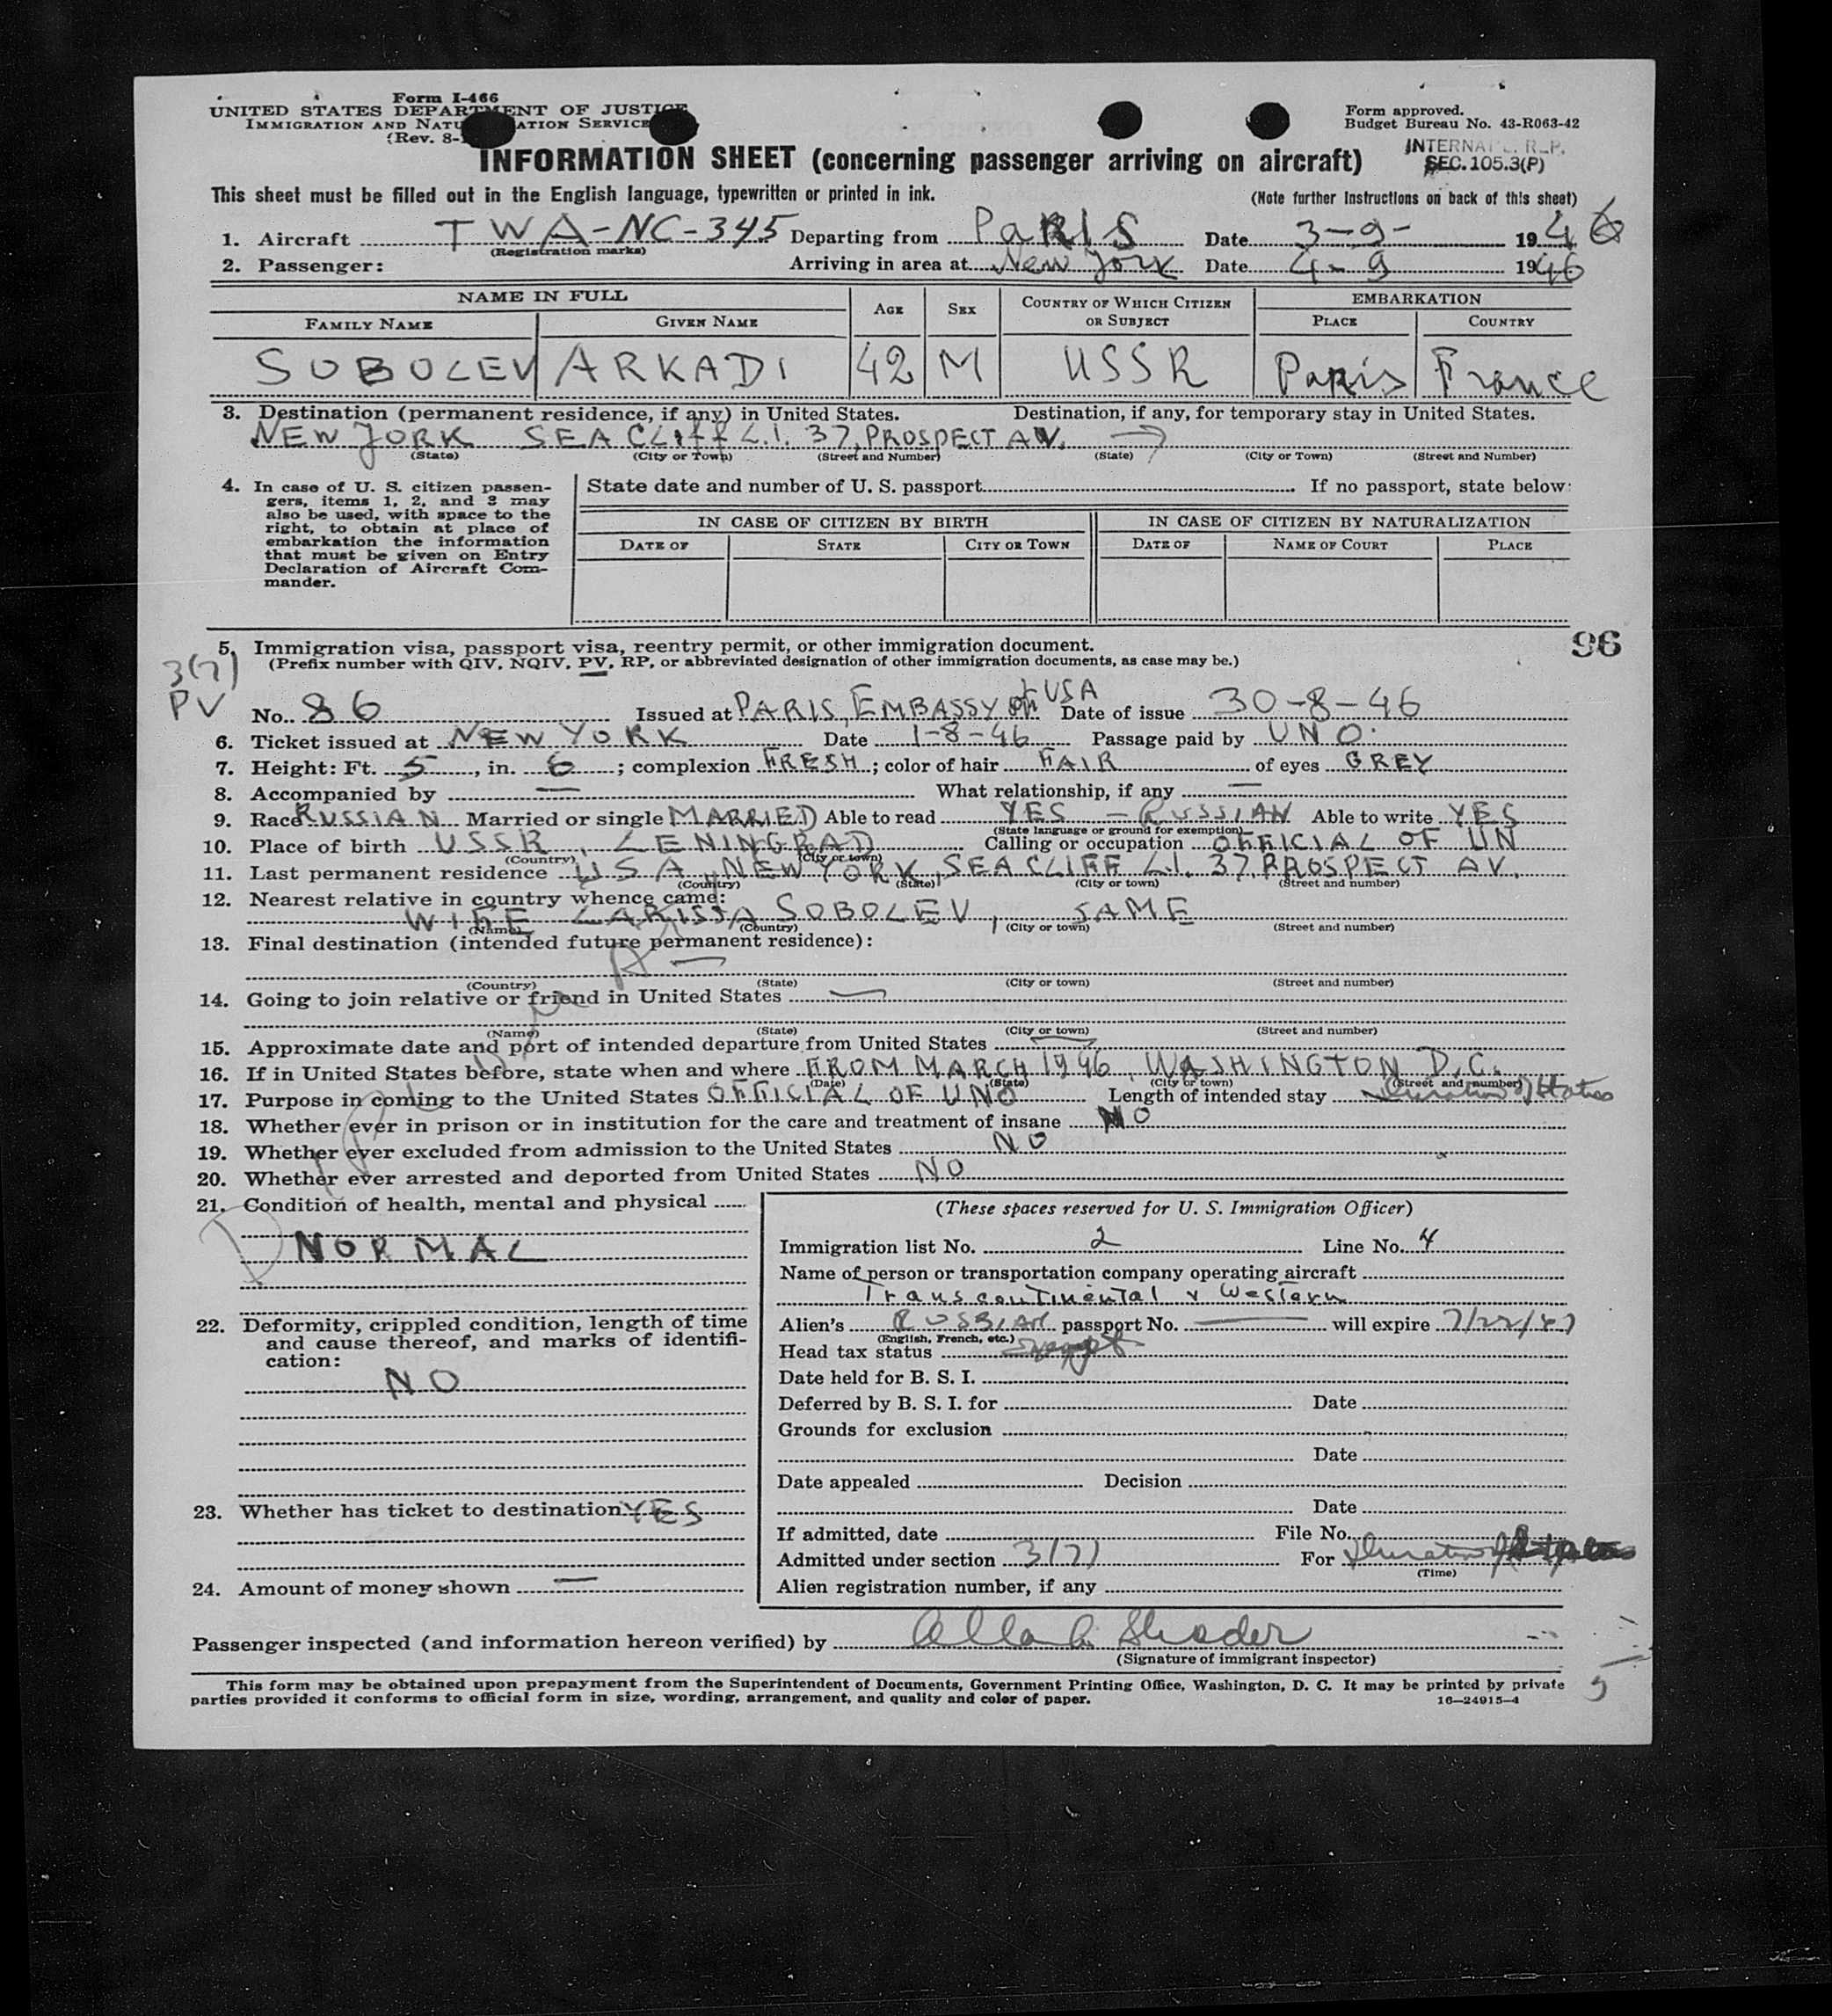 Form I-466
UNITED STATES DEPARTMENT OF JUSTICE
IMMIGRATION AND NATU ATION SERVICE
(Rev. 8-
Form approved.
Budget Bureau No. 43-R063-42
INFORMATION SHEET (concerning passenger arriving on aircraft)
SEC. 105.3(P)
This sheet must be filled out in the English language, typewritten or printed in ink.
(Note further instructions on back of this sheet)
1. Aircraft TWA-NC-345 Departing from PARIS Date 3-9- 1946
(Registration marks)
2. Passenger: Arriving in area at New York Date 4-9 1946
NAME IN FULL AGE SEX COUNTRY OF WHICH CITIZEN OR SUBJECT EMBARKATION
FAMILY NAME GIVEN NAME PLACE COUNTRY
SOBOLEV ARKADI 42 M USSR Paris France
3. Destination (permanent residence, if any) in United States. Destination, if any, for temporary stay in United States.
NEW YORK SEA Cliff L.I. 37, PROSPECT AV.
(State) (City or Town) (Street and Number) (State) (City or Town) (Street and Number)
4. In case of U. S. citizen passen-
gers, items 1, 2, and 3 may
also be used, with space to the
right, to obtain at place of
embarkation the information
that must be given on Entry
Declaration of Aircraft Com-
mander.
State date and number of U. S. passport If no passport, state below:
IN CASE OF CITIZEN BY BIRTH IN CASE OF CITIZEN BY NATURALIZATION
DATE OF STATE CITY OR TOWN DATE OF NAME OF COURT PLACE
96
5. Immigration visa, passport visa, reentry permit, or other immigration document.
(Prefix number with QIV, NQIV, PV, RP, or abbreviated designation of other immigration documents, as case may be.)
3(7)
PV
No. 86 Issued at PARIS, EMBASSY of USA Date of issue 30-8-46
6. Ticket issued at NEW YORK Date 1-8-46 Passage paid by UNO.
7. Height: Ft. 5, in. 6; complexion FRESH; color of hair FAIR of eyes GREY
8. Accompanied by — What relationship, if any —
9. Race RUSSIAN Married or single MARRIED Able to read YES — RUSSIAN Able to write YES
(State language or ground for exemption)
10. Place of birth USSR, LENINGRAD Calling or occupation OFFICIAL OF UN
(Country) (City or town)
11. Last permanent residence USA, NEW YORK, SEA CLIFF L.I. 37, PROSPECT AV.
(Country) (State) (City or town) (Street and number)
12. Nearest relative in country whence came:
WIFE LARISSA SOBOLEV, SAME
(Name) (Country) (City or town) (Street and number)
13. Final destination (intended future permanent residence):
—
(Country) (State) (City or town) (Street and number)
14. Going to join relative or friend in United States —
(Name) (State) (City or town) (Street and number)
15. Approximate date and port of intended departure from United States —
16. If in United States before, state when and where FROM MARCH 1946, WASHINGTON D.C.
(Date) (State) (City or town) (Street and number)
17. Purpose in coming to the United States OFFICIAL OF UNO Length of intended stay Duration of Status
18. Whether ever in prison or in institution for the care and treatment of insane NO
19. Whether ever excluded from admission to the United States NO
20. Whether ever arrested and deported from United States NO
21. Condition of health, mental and physical
NORMAL
22. Deformity, crippled condition, length of time
and cause thereof, and marks of identifi-
cation:
NO
23. Whether has ticket to destination YES
24. Amount of money shown —
(These spaces reserved for U. S. Immigration Officer)
Immigration list No. 2 Line No. 4
Name of person or transportation company operating aircraft
Transcontinental & Western
Alien's RUSSIAN passport No. — will expire 7/22/47
(English, French, etc.)
Head tax status exempt
Date held for B. S. I.
Deferred by B. S. I. for Date
Grounds for exclusion
Date
Date appealed Decision
Date
If admitted, date File No.
Admitted under section 3(7) For Duration of
(Time)
Alien registration number, if any
Passenger inspected (and information hereon verified) by
(Signature of immigrant inspector)
This form may be obtained upon prepayment from the Superintendent of Documents, Government Printing Office, Washington, D. C. It may be printed by private
parties provided it conforms to official form in size, wording, arrangement, and quality and color of paper.
16—24915-4
5